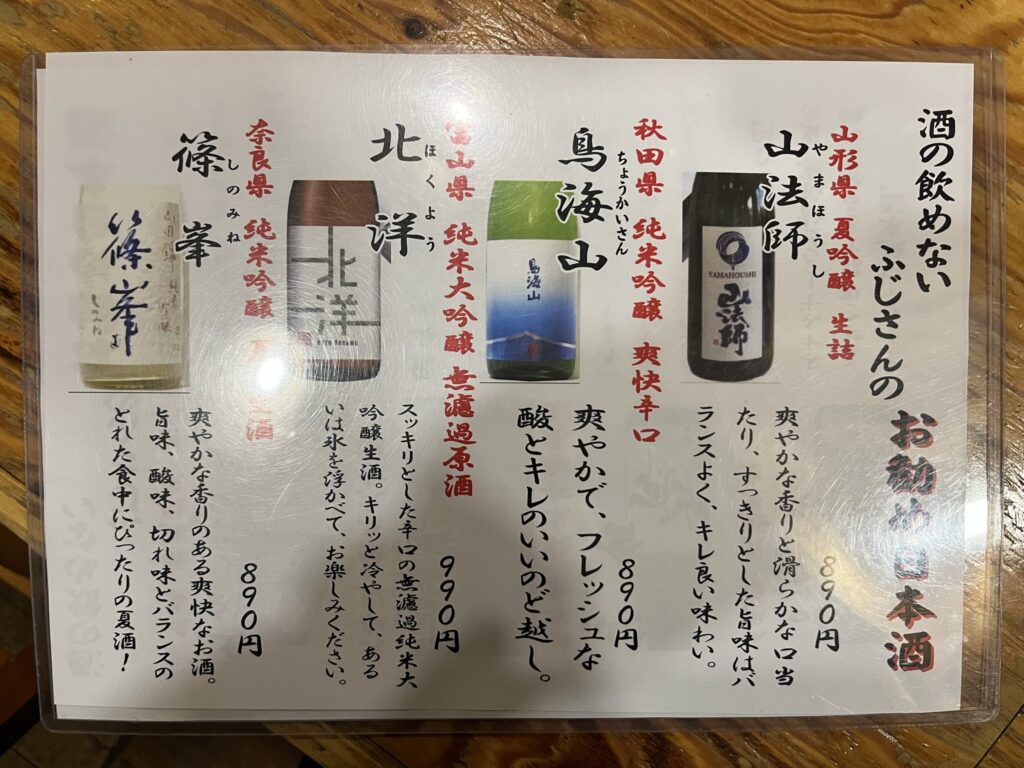 酒の飲めない
ふじさんの
お勧め日本酒
山形県 夏吟醸 生詰
やまほうし
山法師
YAMAHOUSHI
山法師
890円
爽やかな香りと滑らかな口当
たり、すっきりとした旨味はバ
ランスよく、キレ良い味わい。
秋田県 純米吟醸 爽快辛口
ちょうかいさん
鳥海山
鳥海山
890円
爽やかで、フレッシュな
酸とキレのいいのど越し。
富山県 純米大吟醸 無濾過原酒
ほくよう
北洋
北洋
990円
スッキリとした辛口の無濾過純米大
吟醸生酒。キリッと冷やして、ある
いは氷を浮かべて、お楽しみください。
奈良県 純米吟醸 生酒
しのみね
篠峯
山田錦 純米吟醸
篠峯
夏
しのみね
890円
爽やかな香りのある爽快なお酒。
旨味、酸味、切れ味とバランスの
とれた食中にぴったりの夏酒！